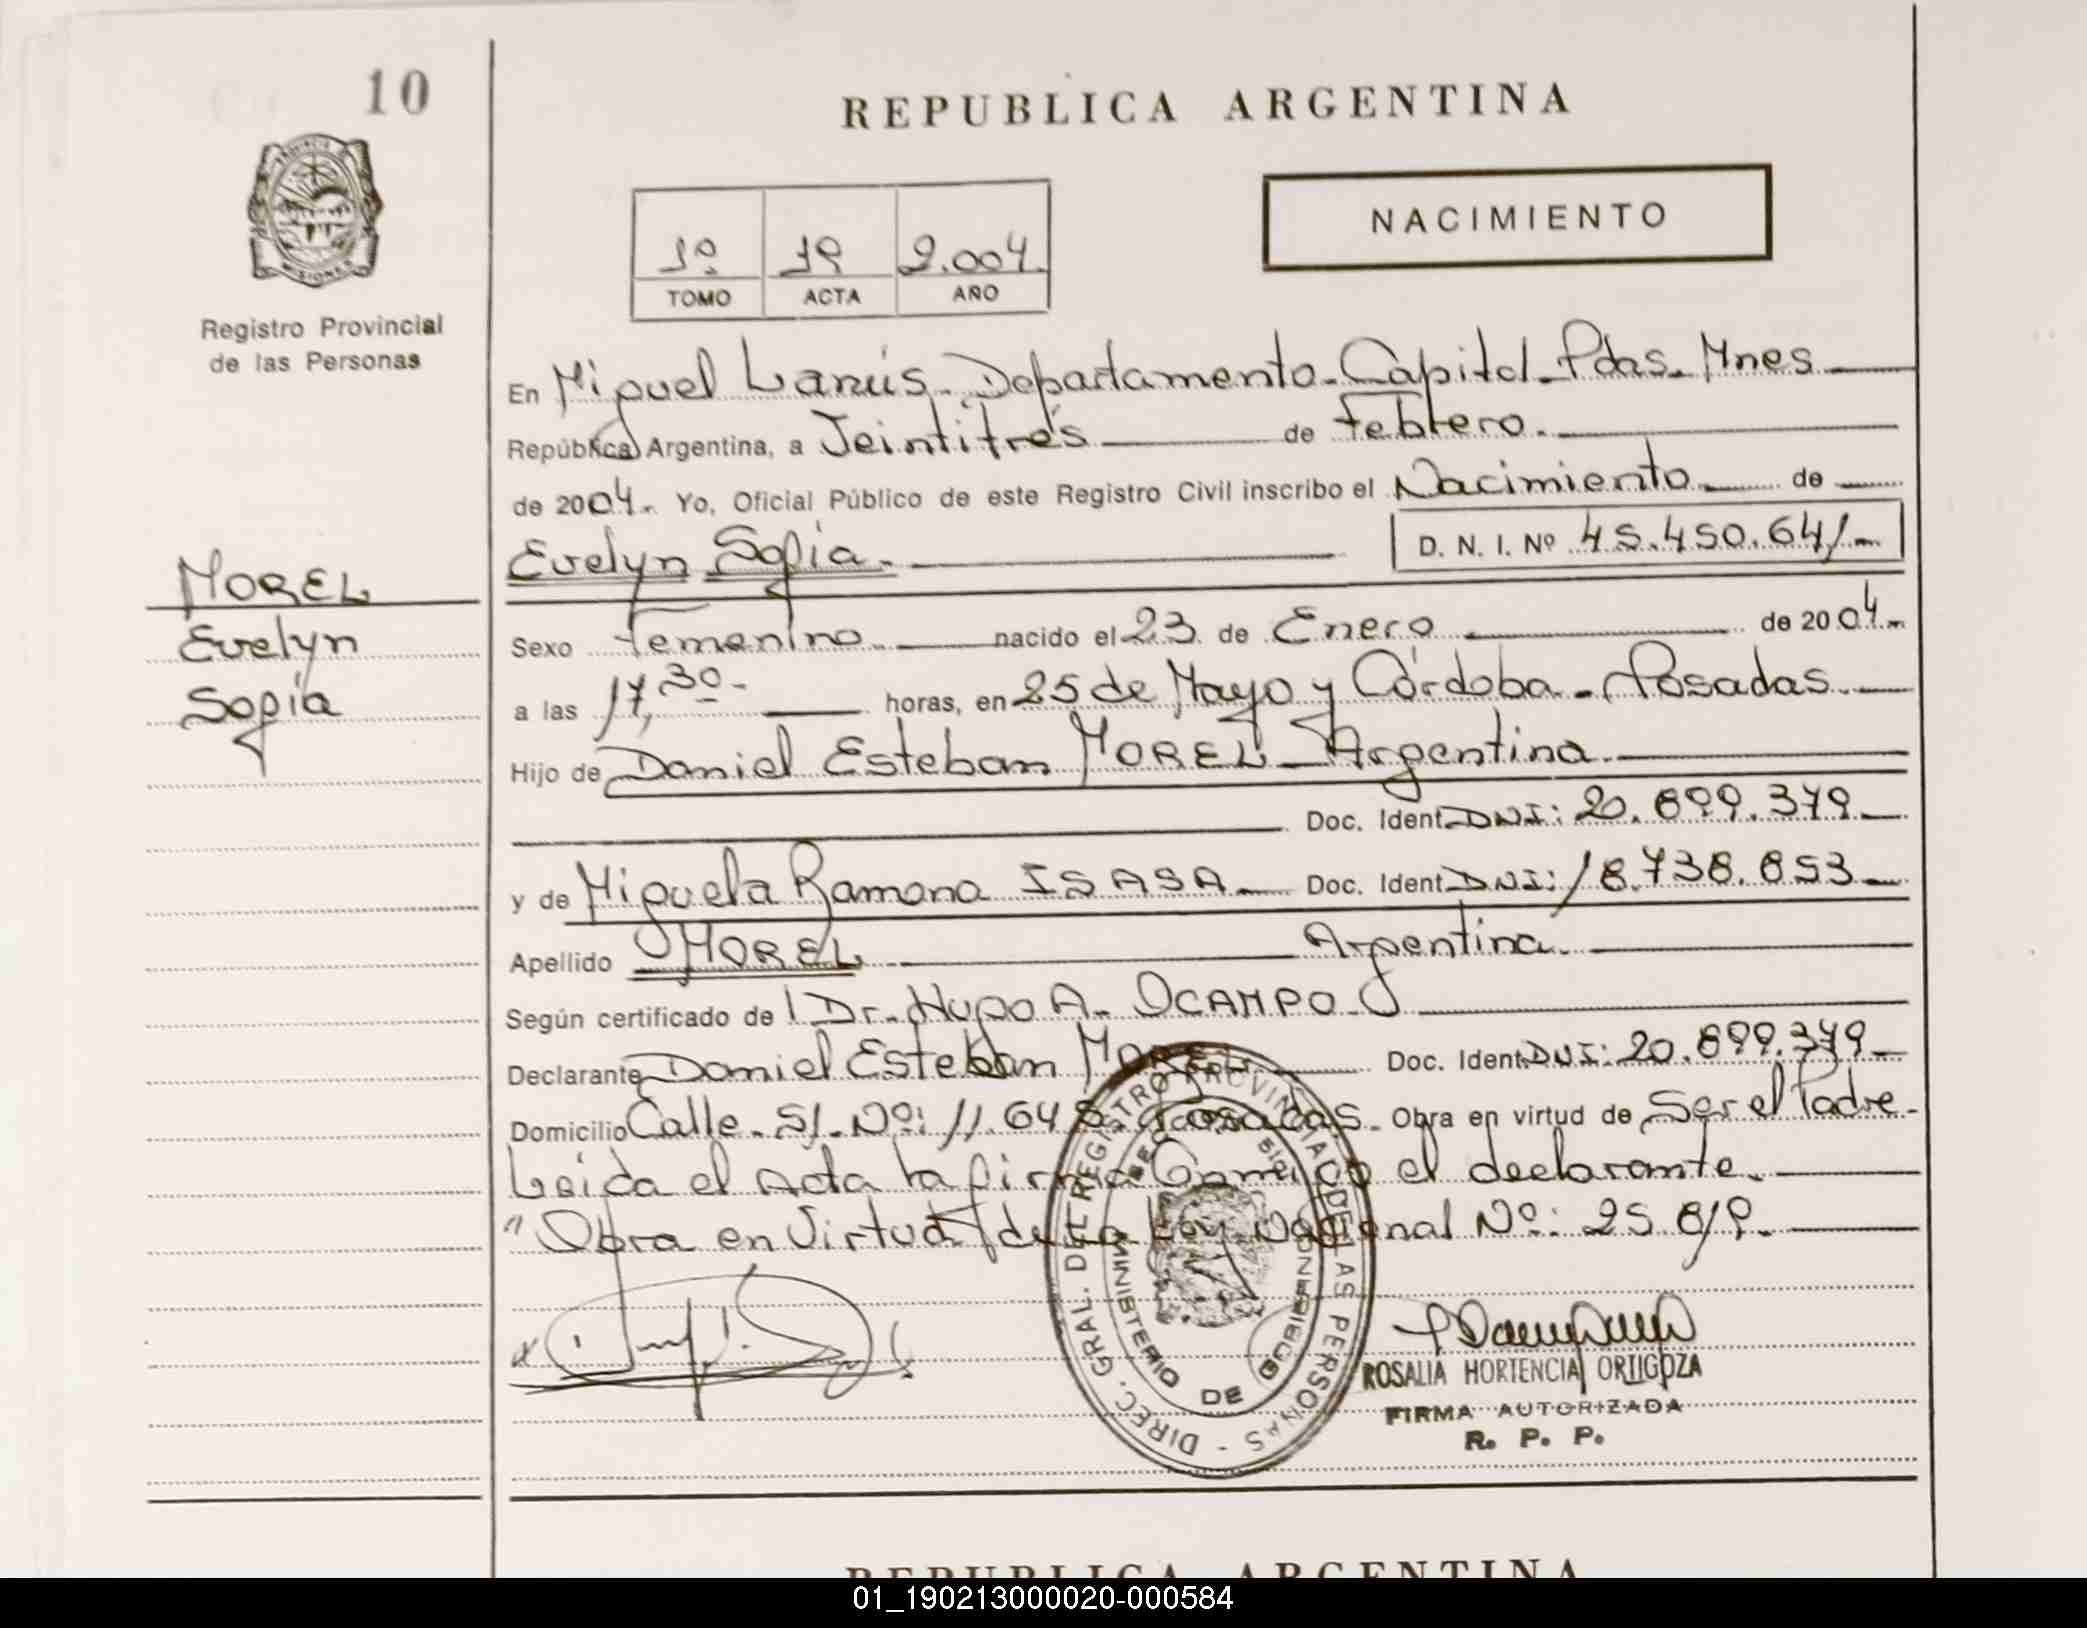 10
REPUBLICA ARGENTINA
NACIMIENTO
1º 19 2.004.
TOMO ACTA AÑO
Registro Provincial
de las Personas
En Miguel Lanús. Departamento. Capital. Pdas. Mnes
República Argentina, a Veintitrés de Febrero.
de 2004. Yo, Oficial Público de este Registro Civil inscribo el Nacimiento de
Evelyn Sofía. D. N. I. Nº 45.450.641.-
MOREL
Evelyn
Sofía
Sexo Femenino nacido el 23 de Enero de 2004.
a las 17,30- horas, en 25 de Mayo y Córdoba - Posadas.
Hijo de Daniel Esteban MOREL - Argentina.
Doc. Ident. DNI: 20.899.379.
y de Miguela Ramona ISASA. Doc. Ident. DNI: 18.738.853
Apellido MOREL Argentina.
Según certificado de Dr. Hugo A. OCAMPO.
Declarante Daniel Esteban MOREL. Doc. Ident. DNI: 20.899.379
Domicilio Calle. S/. Nº: 11.648. Posadas. Obra en virtud de Ser el Padre.
Leida el Acta la firma Conmigo el declarante.
"Obra en Virtud de la Ley Nacional Nº: 25.819.
DIREC. GRAL. DEL REGISTRO PROVINCIAL DE LAS PERSONAS -
MINISTERIO DE GOBIERNO
MISIONES
ROSALIA HORTENCIA ORTIGOZA
FIRMA AUTORIZADA
R. P. P.
REPUBLICA ARGENTINA
01_190213000020-000584